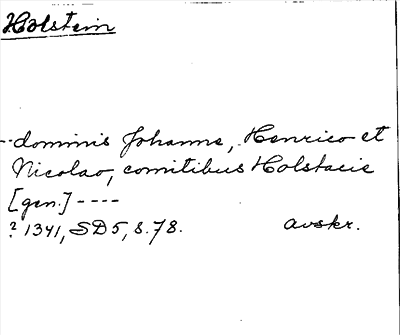 Holstein
--dominis Johanne, Henrico et
Nicolao, comitibus Holstacie
[gen.] ----
? 1341, SD5, s. 78. avskr.